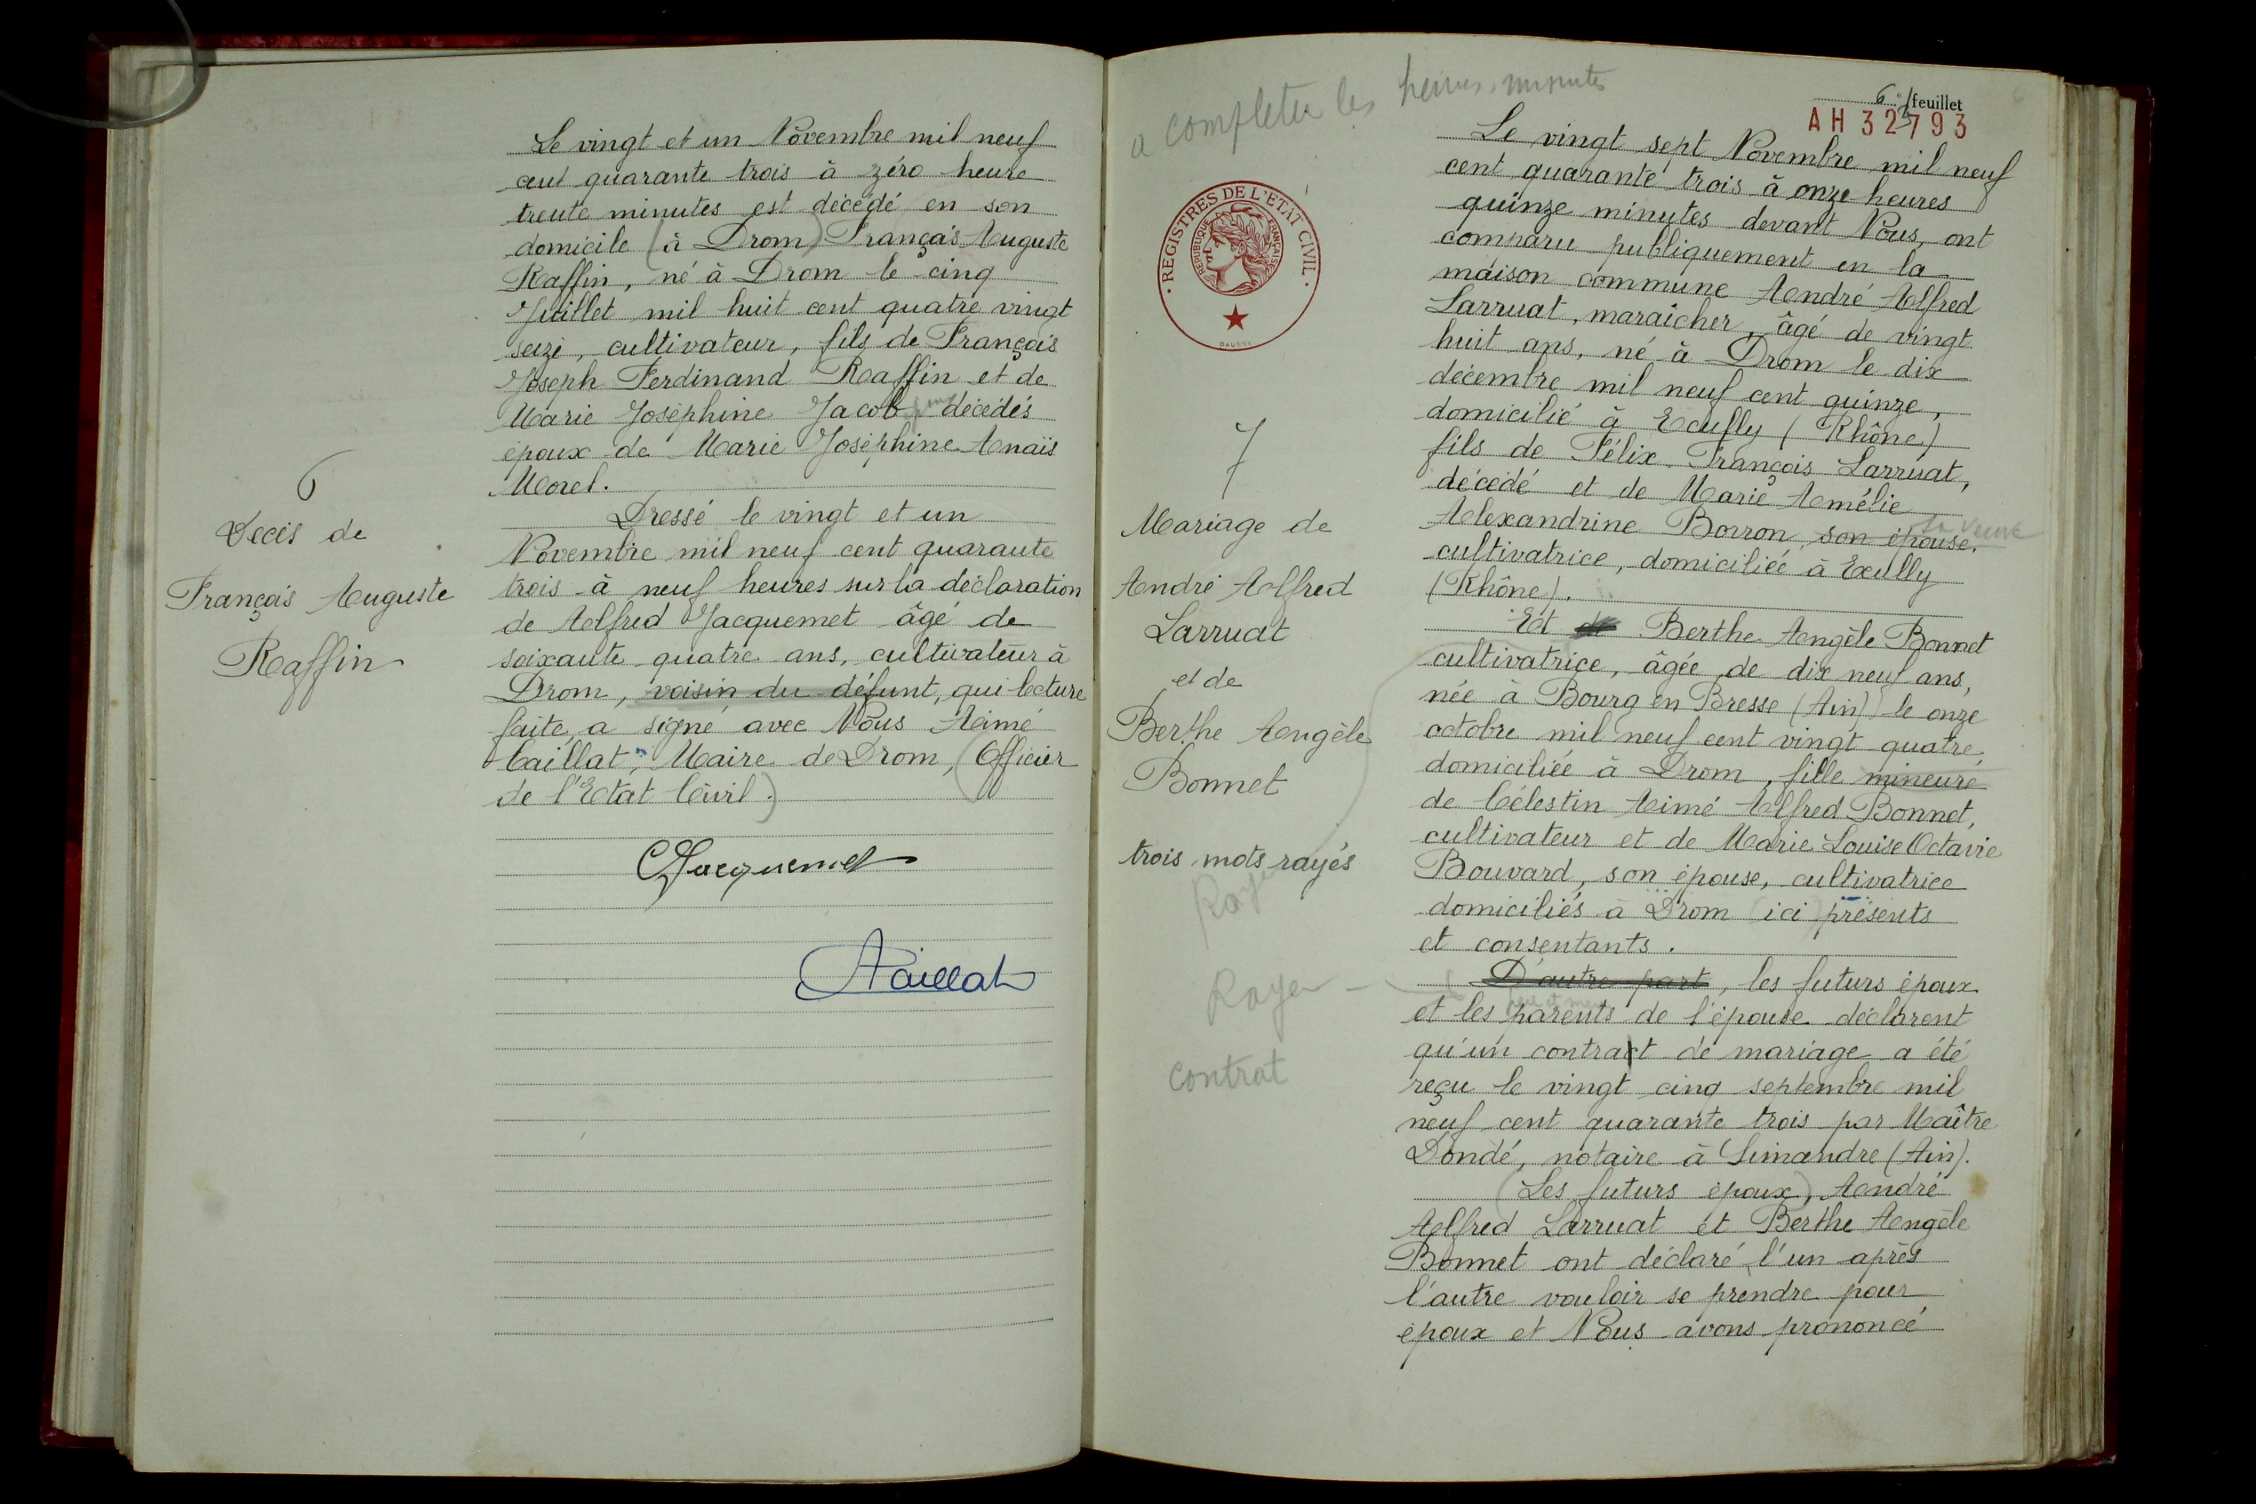 Le vingt et un Novembre mil neuf
cent quarante trois à zéro heure
trente minutes est décédé en son
domicile (à Drom) François Auguste
Raffin, né à Drom le cinq
Juillet mil huit cent quatre vingt
seize, cultivateur, fils de François
Joseph Ferdinand Raffin et de
Marie Joséphine Jacob décédés
époux de Marie Joséphine Anaïs
Morel.
Dressé le vingt et un
Novembre mil neuf cent quarante
trois à neuf heures sur la déclaration
de Alfred Jacquemet âgé de
soixante quatre ans, cultivateur à
Drom, voisin du défunt, qui lecture
faite, a signé avec Nous Aimé
Caillat, Maire de Drom, (Officier
de l'Etat Civil.)
Jacquemet
ACaillat
6
Décès de
François Auguste
Raffin
a completer les heures, minutes
6e feuillet
AH 32793
REGISTRES DE L'ÉTAT CIVIL
RÉPUBLIQUE FRANÇAISE
7
Mariage de
André Alfred
Larruat
et de
Berthe Angèle
Bonnet
trois mots rayés
Rayer
Rayer
contrat
Le vingt sept Novembre mil neuf
cent quarante trois à onze heures
quinze minutes devant Nous, ont
comparu publiquement en la
maison commune André Alfred
Larruat, maraîcher, âgé de vingt
huit ans, né à Drom le dix
décembre mil neuf cent quinze,
domicilié à Ecully (Rhône)
fils de Félix François Larruat,
décédé et de Marie Amélie
Alexandrine Borron, son épouse, sa veuve
cultivatrice, domiciliée à Ecully
(Rhône).
Et de Berthe Angèle Bonnet
cultivatrice, âgée de dix neuf ans,
née à Bourg en Bresse (Ain) le onze
octobre mil neuf cent vingt quatre,
domiciliée à Drom, fille mineure
de Célestin Aimé Alfred Bonnet,
cultivateur et de Marie Louise Octavie
Bouvard, son épouse, cultivatrice
domiciliés à Drom ici présents
et consentants.
D'autre part, les futurs époux
père et mère
et les parents de l'épouse déclarent
qu'un contract de mariage a été
reçu le vingt cinq septembre mil
neuf cent quarante trois par Maître
Dondé, notaire à Simandre (Ain).
(Les futurs époux), André
Alfred Larruat et Berthe Angèle
Bonnet ont déclaré l'un après
l'autre vouloir se prendre pour
époux et Nous avons prononcé